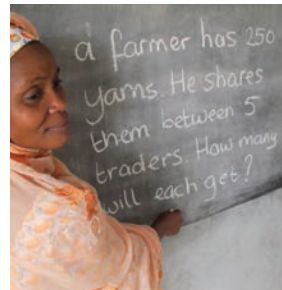 a farmer has 250
yams. He shares
them between 5
traders. How many
will each get?